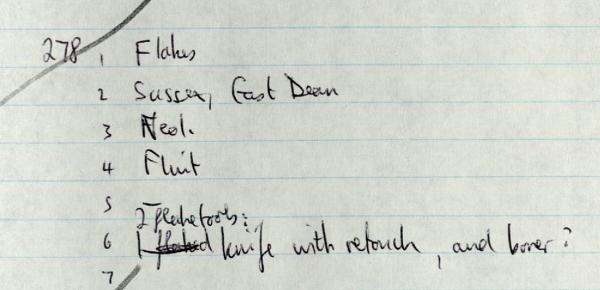 278 1 Flakes
2 Sussex, East Dean
3 Neol.
4 Flint
5
2 flake tools:
6 1 knife with retouch, and borer?
7